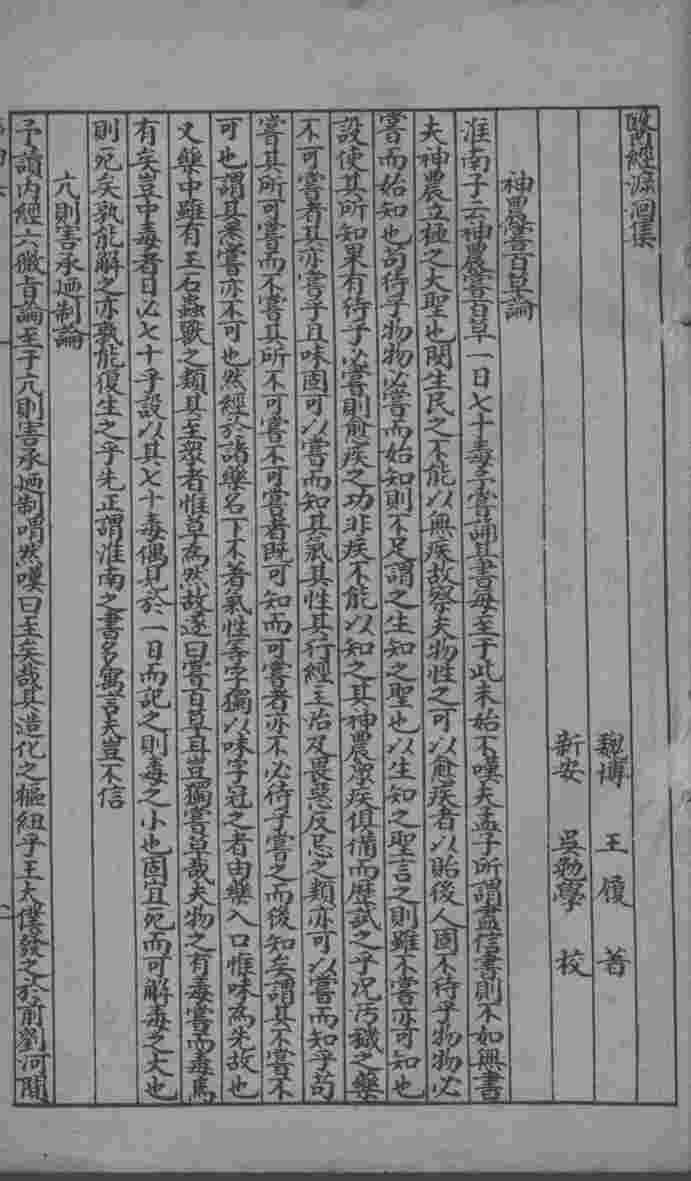 醫經溯洄集
魏博　王　履　著
新安　吳勉學　校
神農嘗百草論
淮南子云神農嘗百草一日七十毒予嘗誦其書每至于此未始不嘆夫孟子所謂盡信書則不如無書
夫神農立極之大聖也閔生民之不能以無疾故察夫物性之可以愈疾者以貽後人固不待乎物物必
嘗而始知也苟待乎物物必嘗而始知則不足謂之生知之聖也以生知之聖言之則雖不嘗亦可知也
設使其所知果有待乎必嘗則愈疾之功非疾不能以知之其神農眾疾俱備而歷試之乎况污穢之藥
不可嘗者其亦嘗乎且味固可以嘗而知其氣其性其行經主治及畏惡反忌之類亦可以嘗而知乎苟
嘗其所可嘗而不嘗其所不可嘗不可嘗者既可知而可嘗者亦不必待乎嘗之而後知矣謂其不嘗不
可也謂其悉嘗亦不可也然經於諸藥名下不著氣性等字獨以味字冠之者由藥入口惟味為先故也
又藥中雖有玉石蟲獸之類其至眾者惟草為然故遂曰嘗百草耳豈獨嘗草哉夫物之有毒嘗而毒焉
有矣豈中毒者日必七十乎設以其七十毒偶見於一日而記之則毒之小也固宜死而可解毒之大也
則死矣孰能解之亦孰能復生之乎先正謂淮南之書多寓言夫豈不信
亢則害承廼制論
予讀內經六微旨論至于亢則害承廼制喟然嘆曰至矣哉其造化之樞紐乎王太僕發之於前劉河間